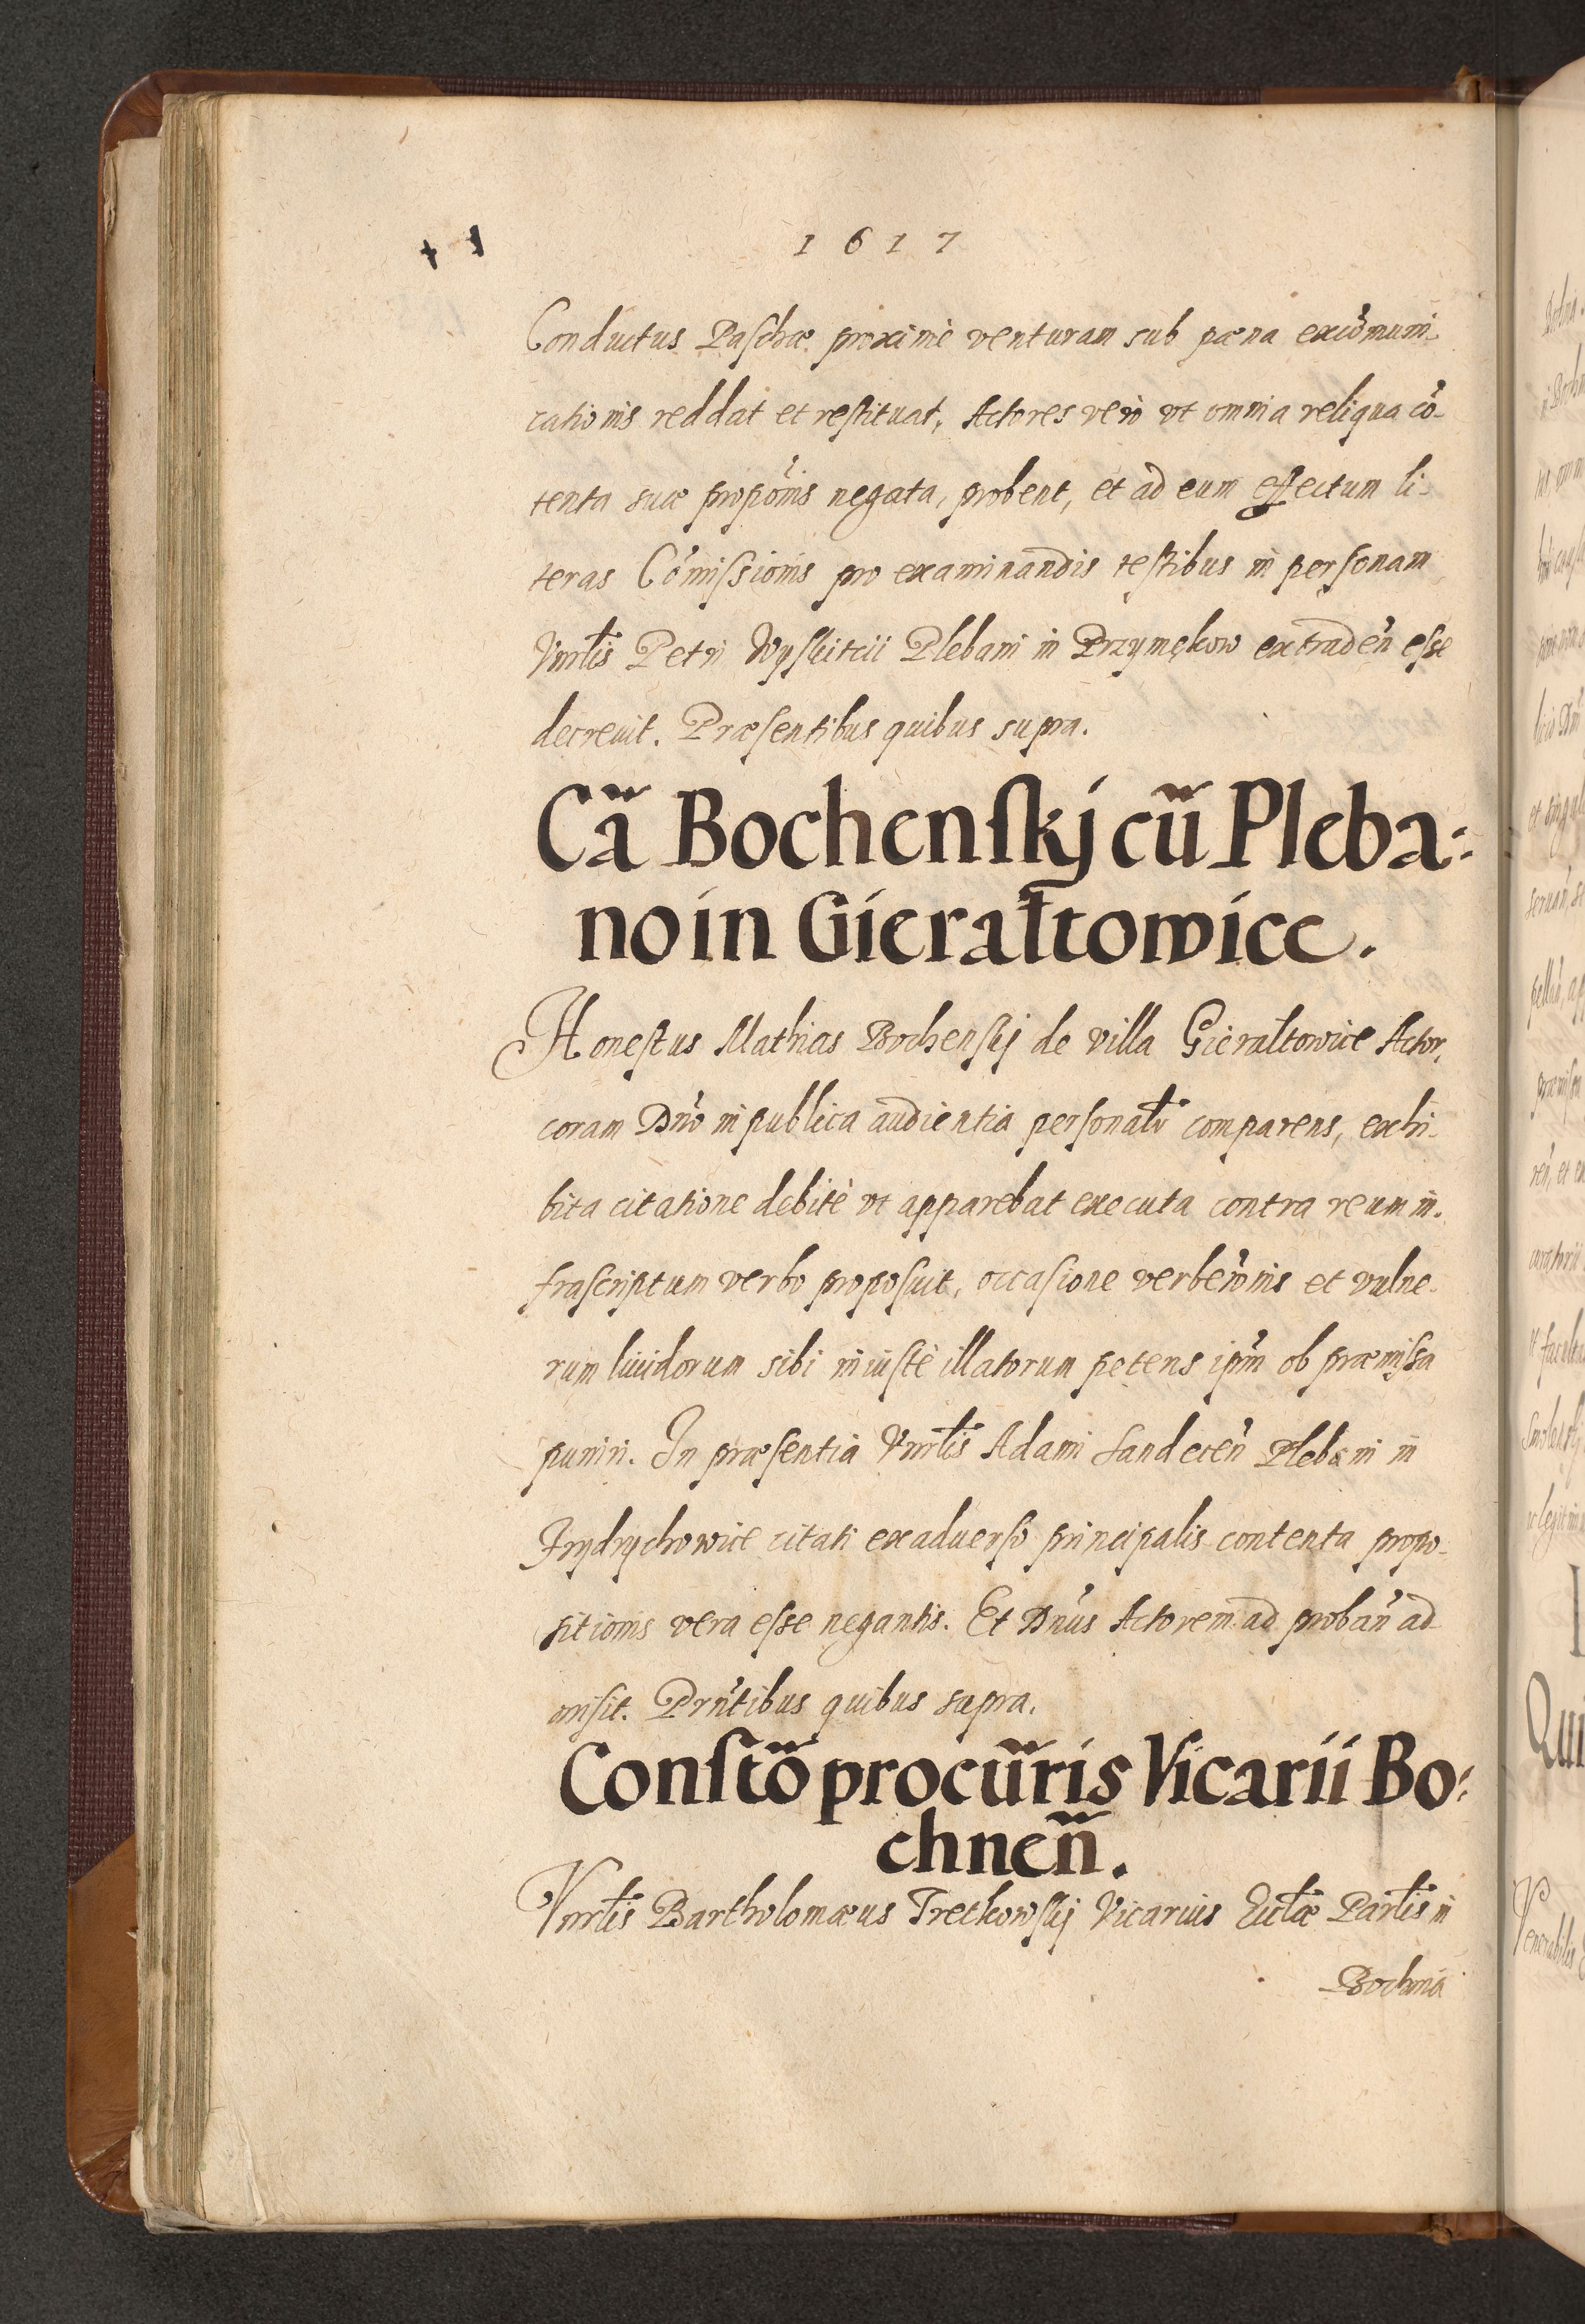 1617
Conductus Paschæ proximè venturam sub pœna excõmuni-
cationis reddat et restituat, Actores verò vt omnia reliqua cõ-
tenta suæ propõnis negata, probent, et ad eum effectum li-
teras Cõmissionis pro examinandis testibus in personam
Vnrlis Petri Plebani in extraden̄ esse
decreuit. Præsentibus quibus supra.
Cã Bochenskj cũ Pleba:
no in Gierałtowice.
Honestus Mathias Bochenskj de villa Gierałtowice Actor,
coram Dnõ in publica audientia personalr̃ comparens, exhi-
bita citatione debitè vt apparebat executa contra reum in-
frascriptum verbo proposuit, occasione verberõnis et vulne-
rum liuidorum sibi iniustè illatorum petens ipm̃ ob præmissa
puniri. In præsentia Vnrlis Adami Sandecen̄ Plebani in
Frydrychowice citati ex aduerso principalis contenta propo-
sitionis vera esse negantis. Et Dnũs Actorem ad proban̄ ad-
misit. Prñtibus quibus supra.
Constõ procũris Vicarii Bo:
chnen̄.
Vnrlis Bartholomæus Tretkowskj Vicarius Ecclæ Parlis in
Bochnia